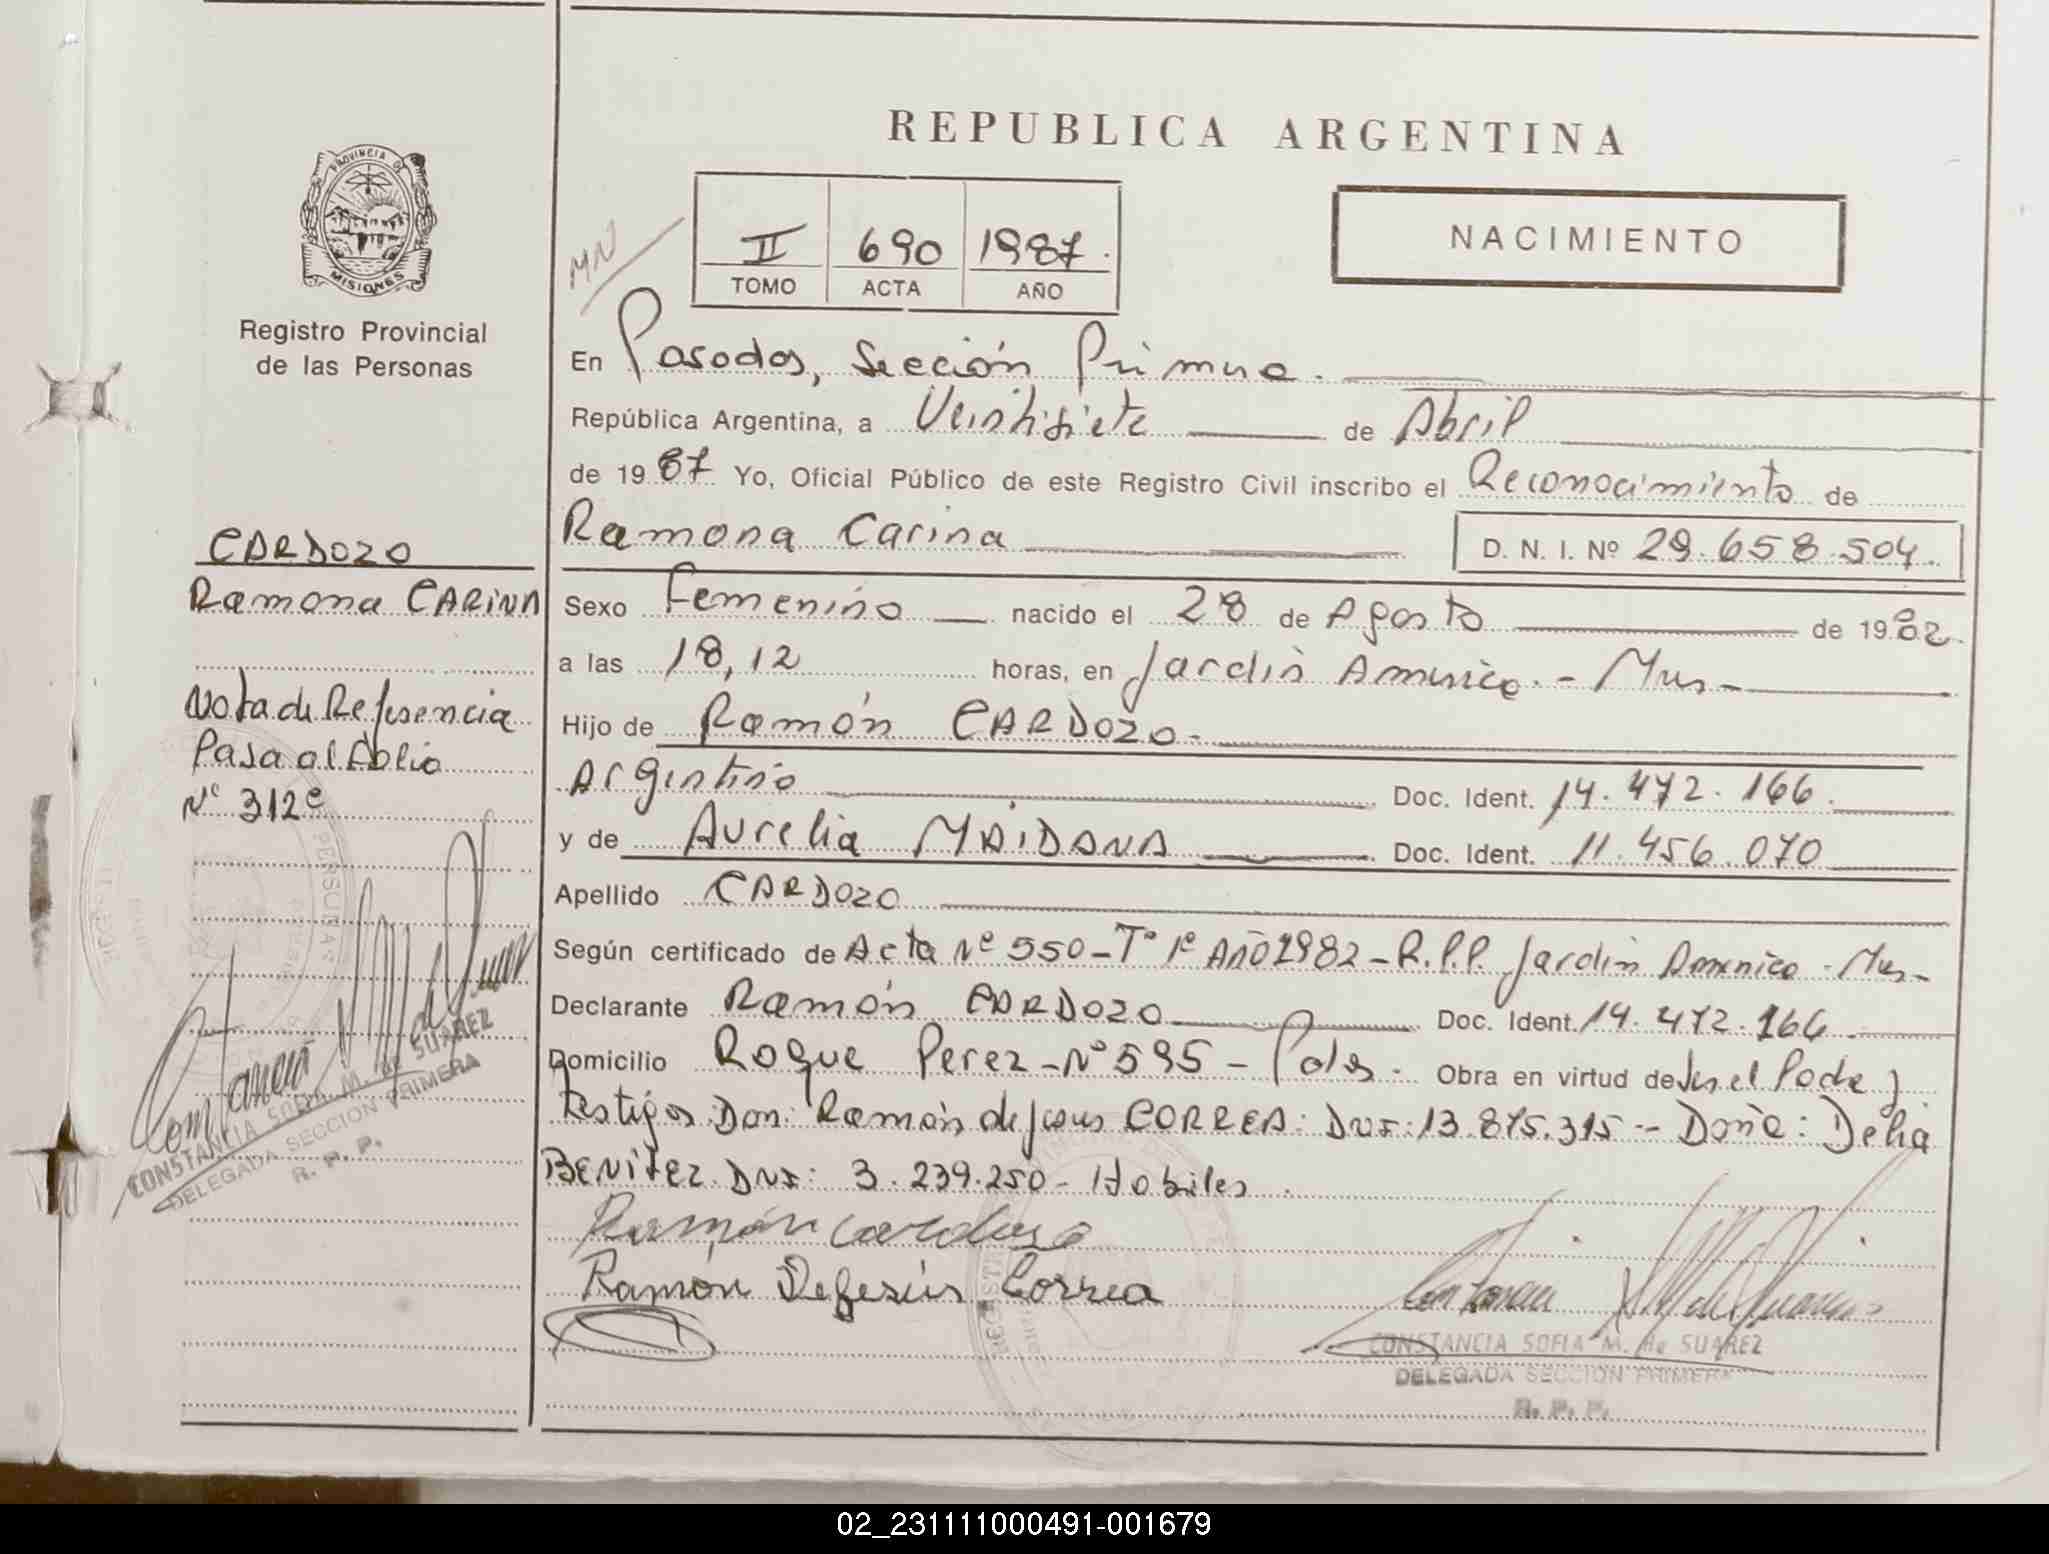 REPUBLICA ARGENTINA
PROVINCIA DE
MISIONES
Registro Provincial
de las Personas
MN
II 690 1987.
TOMO ACTA AÑO
NACIMIENTO
En Posadas, Sección Primera.
República Argentina, a Veintisiete de Abril
de 1987 Yo, Oficial Público de este Registro Civil inscribo el Reconocimiento de
Ramona Carina D. N. I. Nº 29.658.504.
Sexo Femenino nacido el 28 de Agosto de 1982
a las 18,12 horas, en Jardín America. - Mnes-
Hijo de Ramón CARDOZO-
Argentino Doc. Ident. 14.472.166.
y de Aurelia MAIDANA Doc. Ident. 11.456.070
Apellido CARDOZO
Según certificado de Acta Nº 550-Tº 1º AÑO 1982-R.P.P. Jardín America - Mnes-
Declarante Ramón CARDOZO Doc. Ident. 14.472.166.
Domicilio Roque Perez-Nº 595- Pdas. Obra en virtud de Ser el Padre y
testigos Don: Ramón de Jesus CORREA: DNI: 13.875.315-- Doña: Delia
BENITEZ DNI: 3.239.250- Habiles.
Ramón Cardozo
Ramón DeJesús Correa
CONSTANCIA SOFIA M. de SUAREZ
DELEGADA SECCION PRIMERA
R. P. P.
CARDOZO
Ramona CARINA
Nota de Referencia
Pasa al folio
Nº 312º
CONSTANCIA SOFIA M. de SUAREZ
DELEGADA SECCION PRIMERA
R. P. P.
02_231111000491-001679